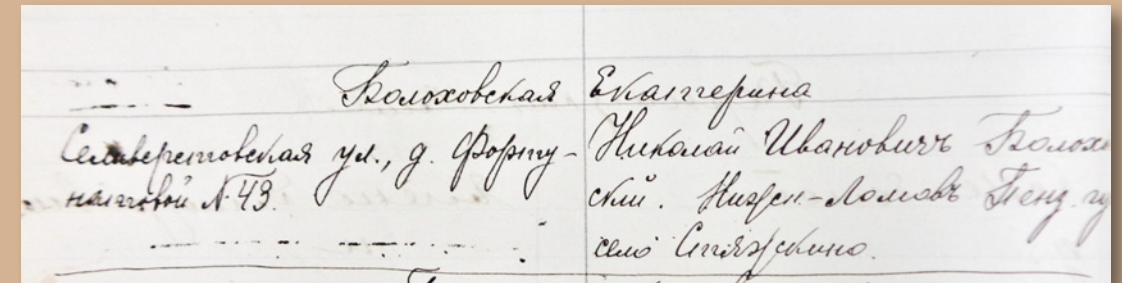 Болоховская Екатерина
Селиверстовская ул., д. Форту-
натовой № 43.
Николай Ивановичъ Болохо
скій. Нижн.-Ломовъ Пенз. гу
село Стяжкино.